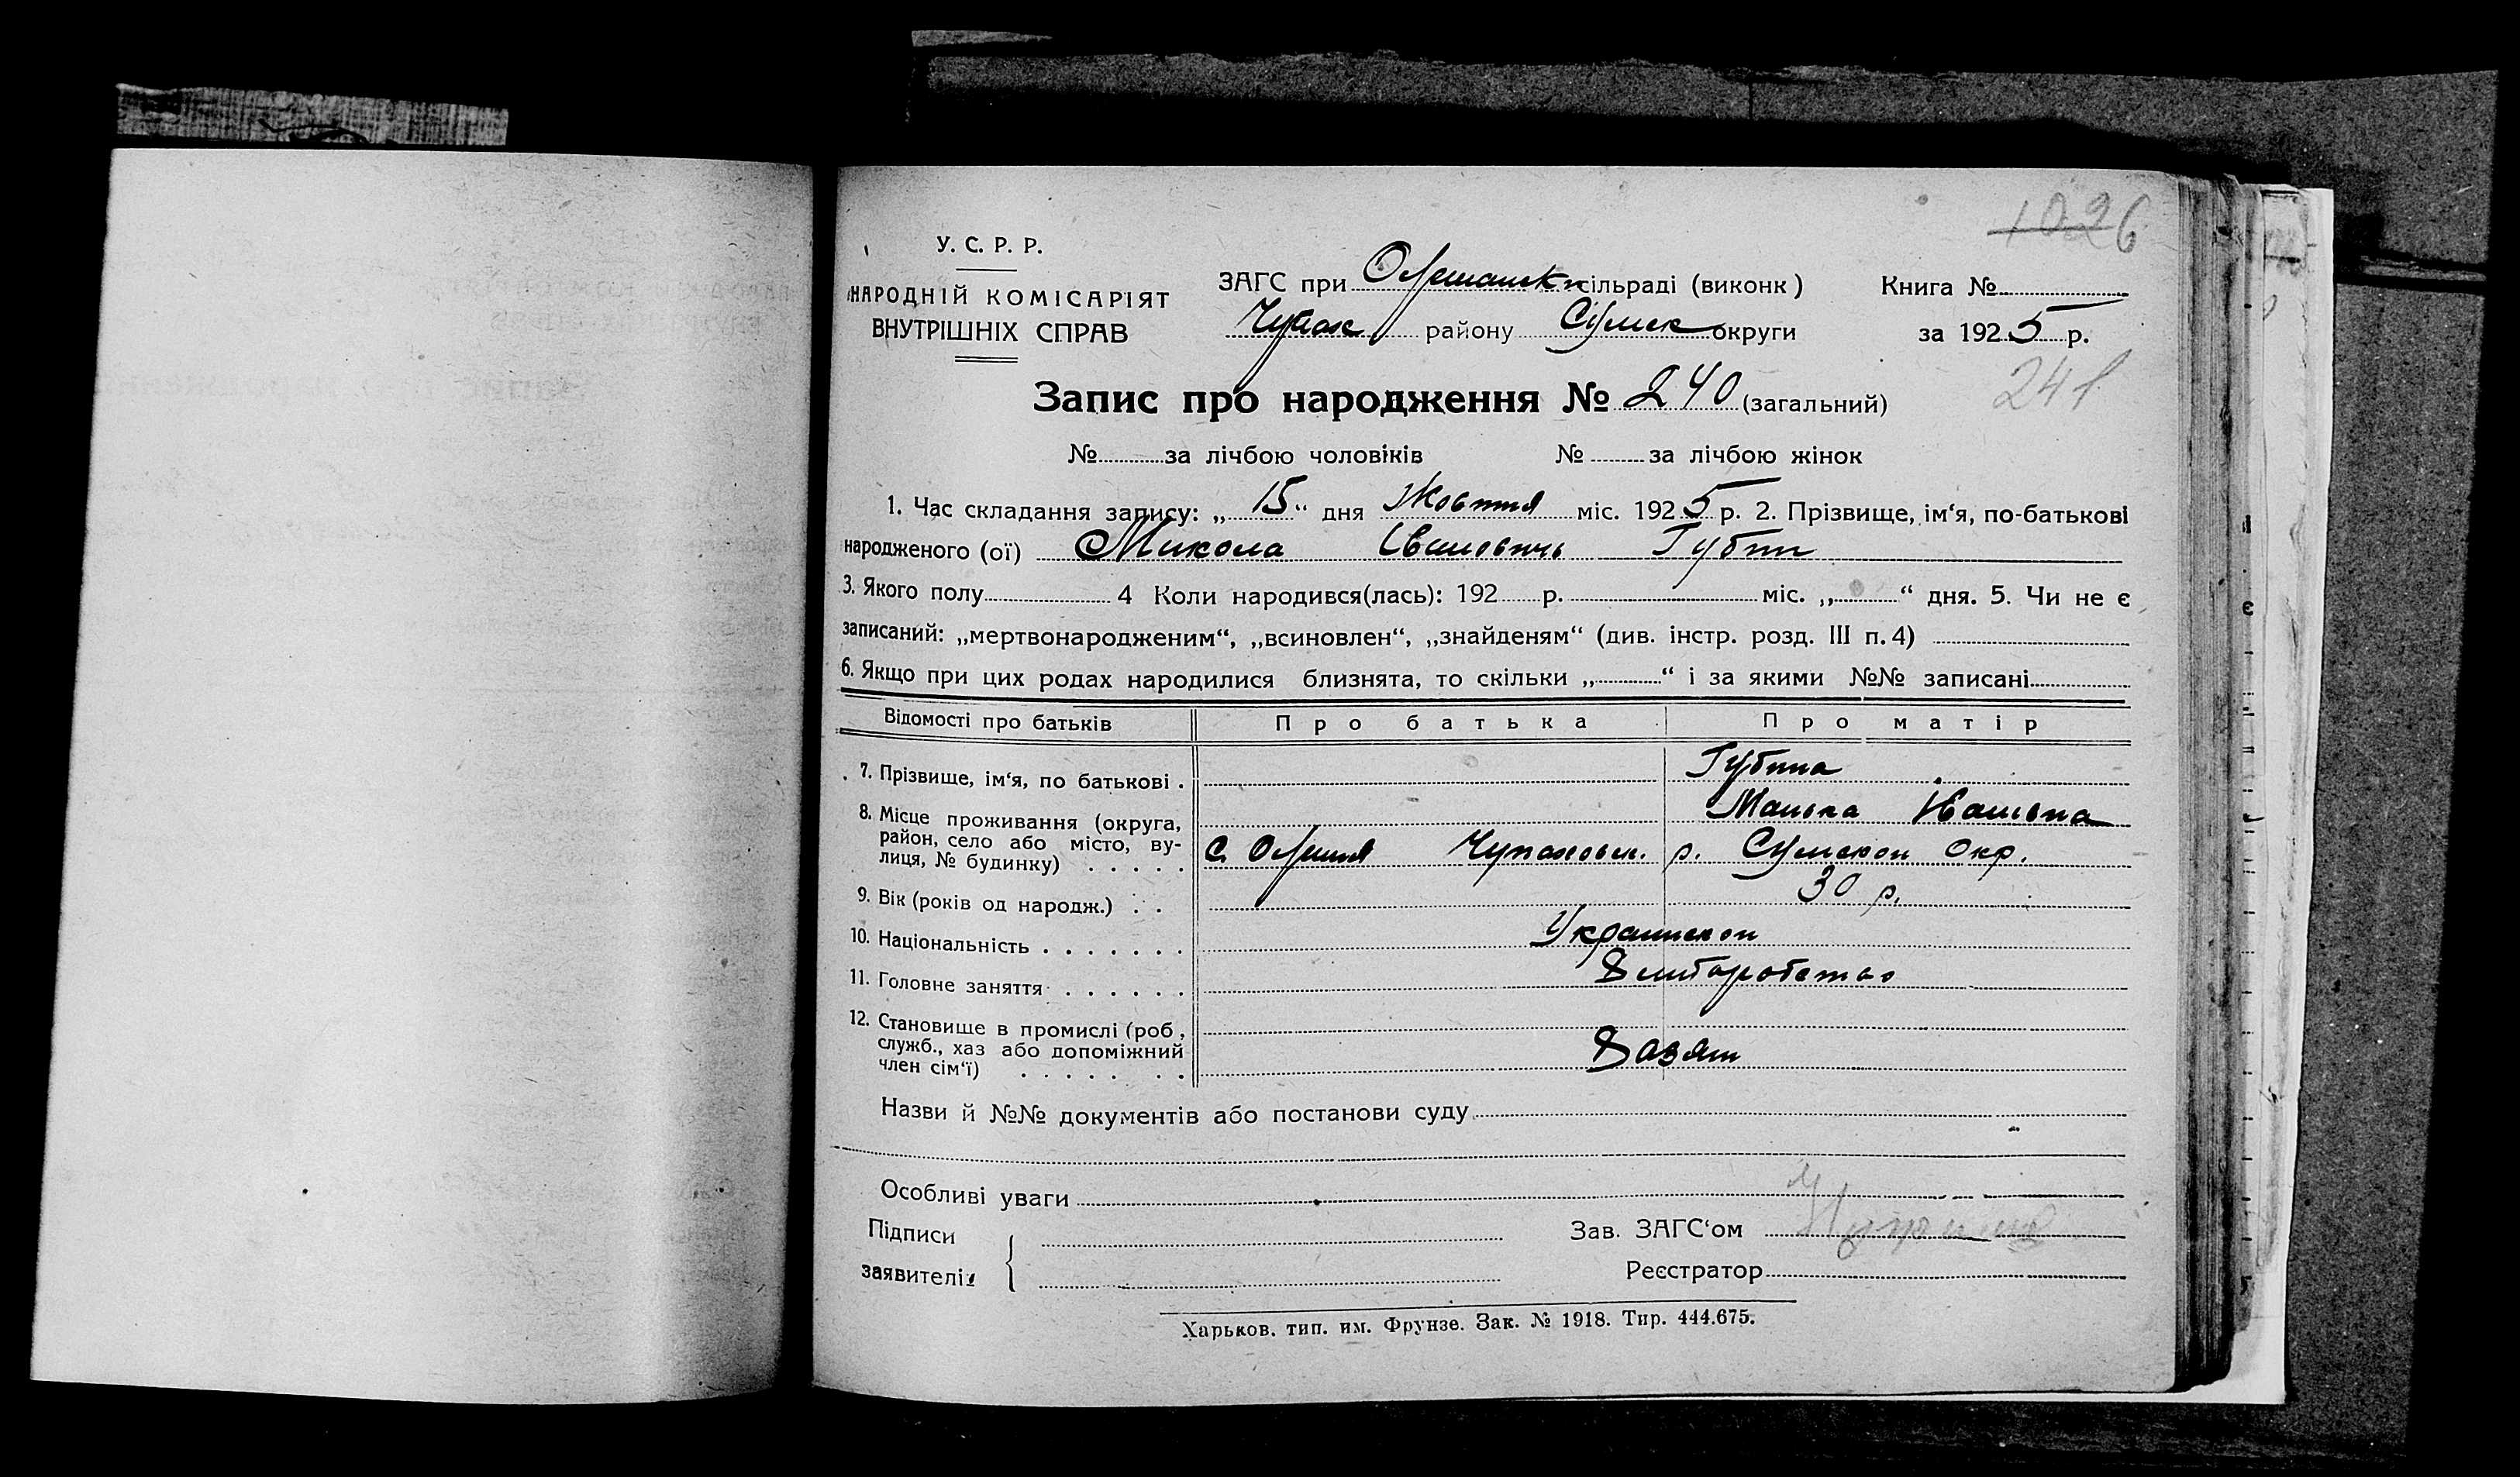 1026
У. С. Р. Р.
НАРОДНІЙ КОМІСАРІЯТ
ВНУТРІШНІХ СПРАВ
ЗАГС при Олешанск сільраді (виконк) Книга №
Чупах району Сумск округи за 1925 р.
Запис про народження № 240 (загальний) 241
№ за лічбою чоловіків № за лічбою жінок
1. Час складання запису: „15“ дня Жовтня міс. 1925 р. 2. Прізвище, ім‘я, по-батькові
народженого (ої) Микола Івановичь Губин
3. Якого полу 4 Коли народився(лась): 192 р. міс. „ “ дня. 5. Чи не є
записаний: „мертвонародженим“, „всиновлен“, „знайденям“ (див. інстр. розд. III п. 4)
6. Якщо при цих родах народилися близнята, то скільки „ “ і за якими №№ записані
Відомості про батьків Про батька Про матір
7. Прізвище, ім‘я, по батькові . Губина
Івановна
8. Місце проживання (округа,
район, село або місто, ву-
лиця, № будинку) . . . . . с. Олешня Чупаховск. р. Сумской Окр.
9. Вік (років од народж.) . . 30 р.
10. Національність . . . . . . . Украинской
11. Головне заняття . . . . . . Хлиборобство
12. Становище в промислі (роб ,
служб., хаз або допоміжний
член сім‘ї) . . . . . . .
Назви й №№ документів або постанови суду
Особливі уваги
Підписи
заявителів
Зав. ЗАГС‘ом
Реєстратор
Харьков. тип. им. Фрунзе. Зак. № 1918. Тир. 444.675.